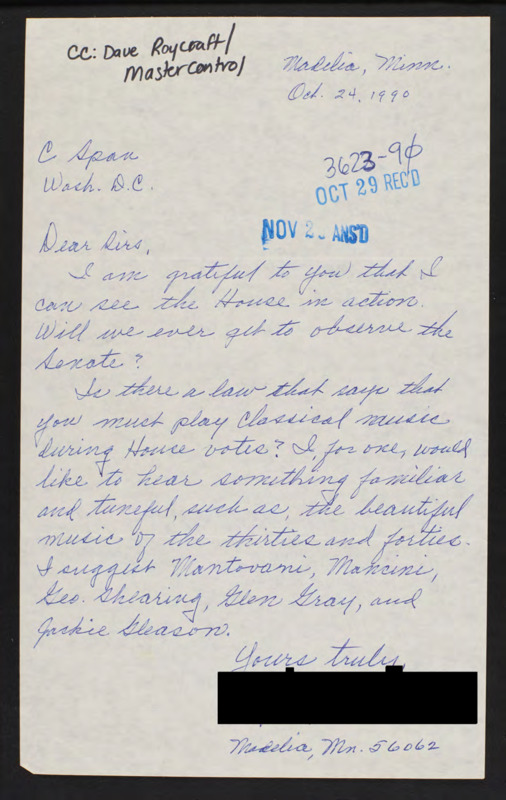 CC: Dave Roycraft/
Mastercontrol
Madelia, Minn.
Oct. 24, 1990
C Span
Wash. D.C.
3623-90
OCT 29 REC'D
NOV 2 ANS'D
Dear Sirs,
I am grateful to you that I
can see the House in action.
Will we ever get to observe the
Senate?
Is there a law that says that
you must play Classical music
during House votes? I, for one, would
like to hear something familiar
and tuneful, such as, the beautiful
music of the thirties and forties.
I suggest Mantovani, Mancini,
Geo. Shearing, Glen Gray, and
Jackie Gleason.
Yours truly,
Madelia, Mn. 56062